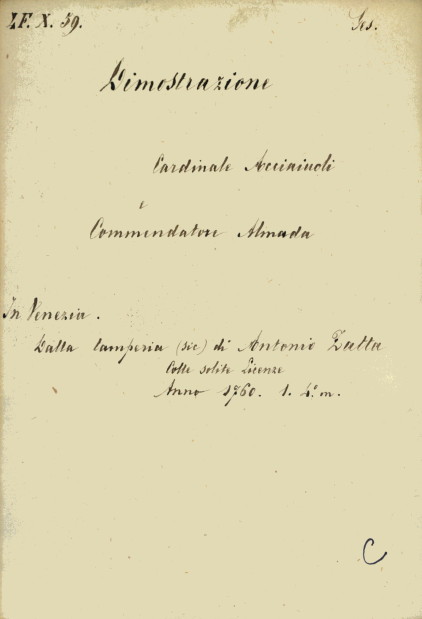 LF. X. 59. Ges.
Dimostrazione
Cardinale Acciaiuoli
e
Commendatore Almada
In Venezia.
Dalla tamperia (sic) di Antonio Zatta
Colle solite Licenze
Anno 1760. 1. 4.° m.
C